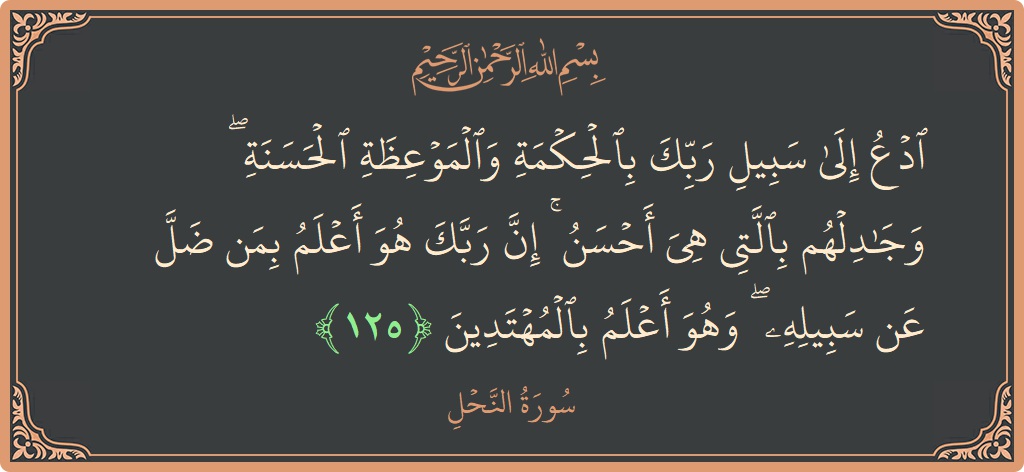 بِسْمِ اللَّهِ الرَّحْمَٰنِ الرَّحِيمِ
ٱدۡعُ إِلَىٰ سَبِيلِ رَبِّكَ بِٱلۡحِكۡمَةِ وَٱلۡمَوۡعِظَةِ ٱلۡحَسَنَةِۖ
وَجَٰدِلۡهُم بِٱلَّتِي هِيَ أَحۡسَنُۚ إِنَّ رَبَّكَ هُوَ أَعۡلَمُ بِمَن ضَلَّ
عَن سَبِيلِهِۦۖ وَهُوَ أَعۡلَمُ بِٱلۡمُهۡتَدِينَ ﴿١٢٥﴾
سُورَةُ النَّحْلِ